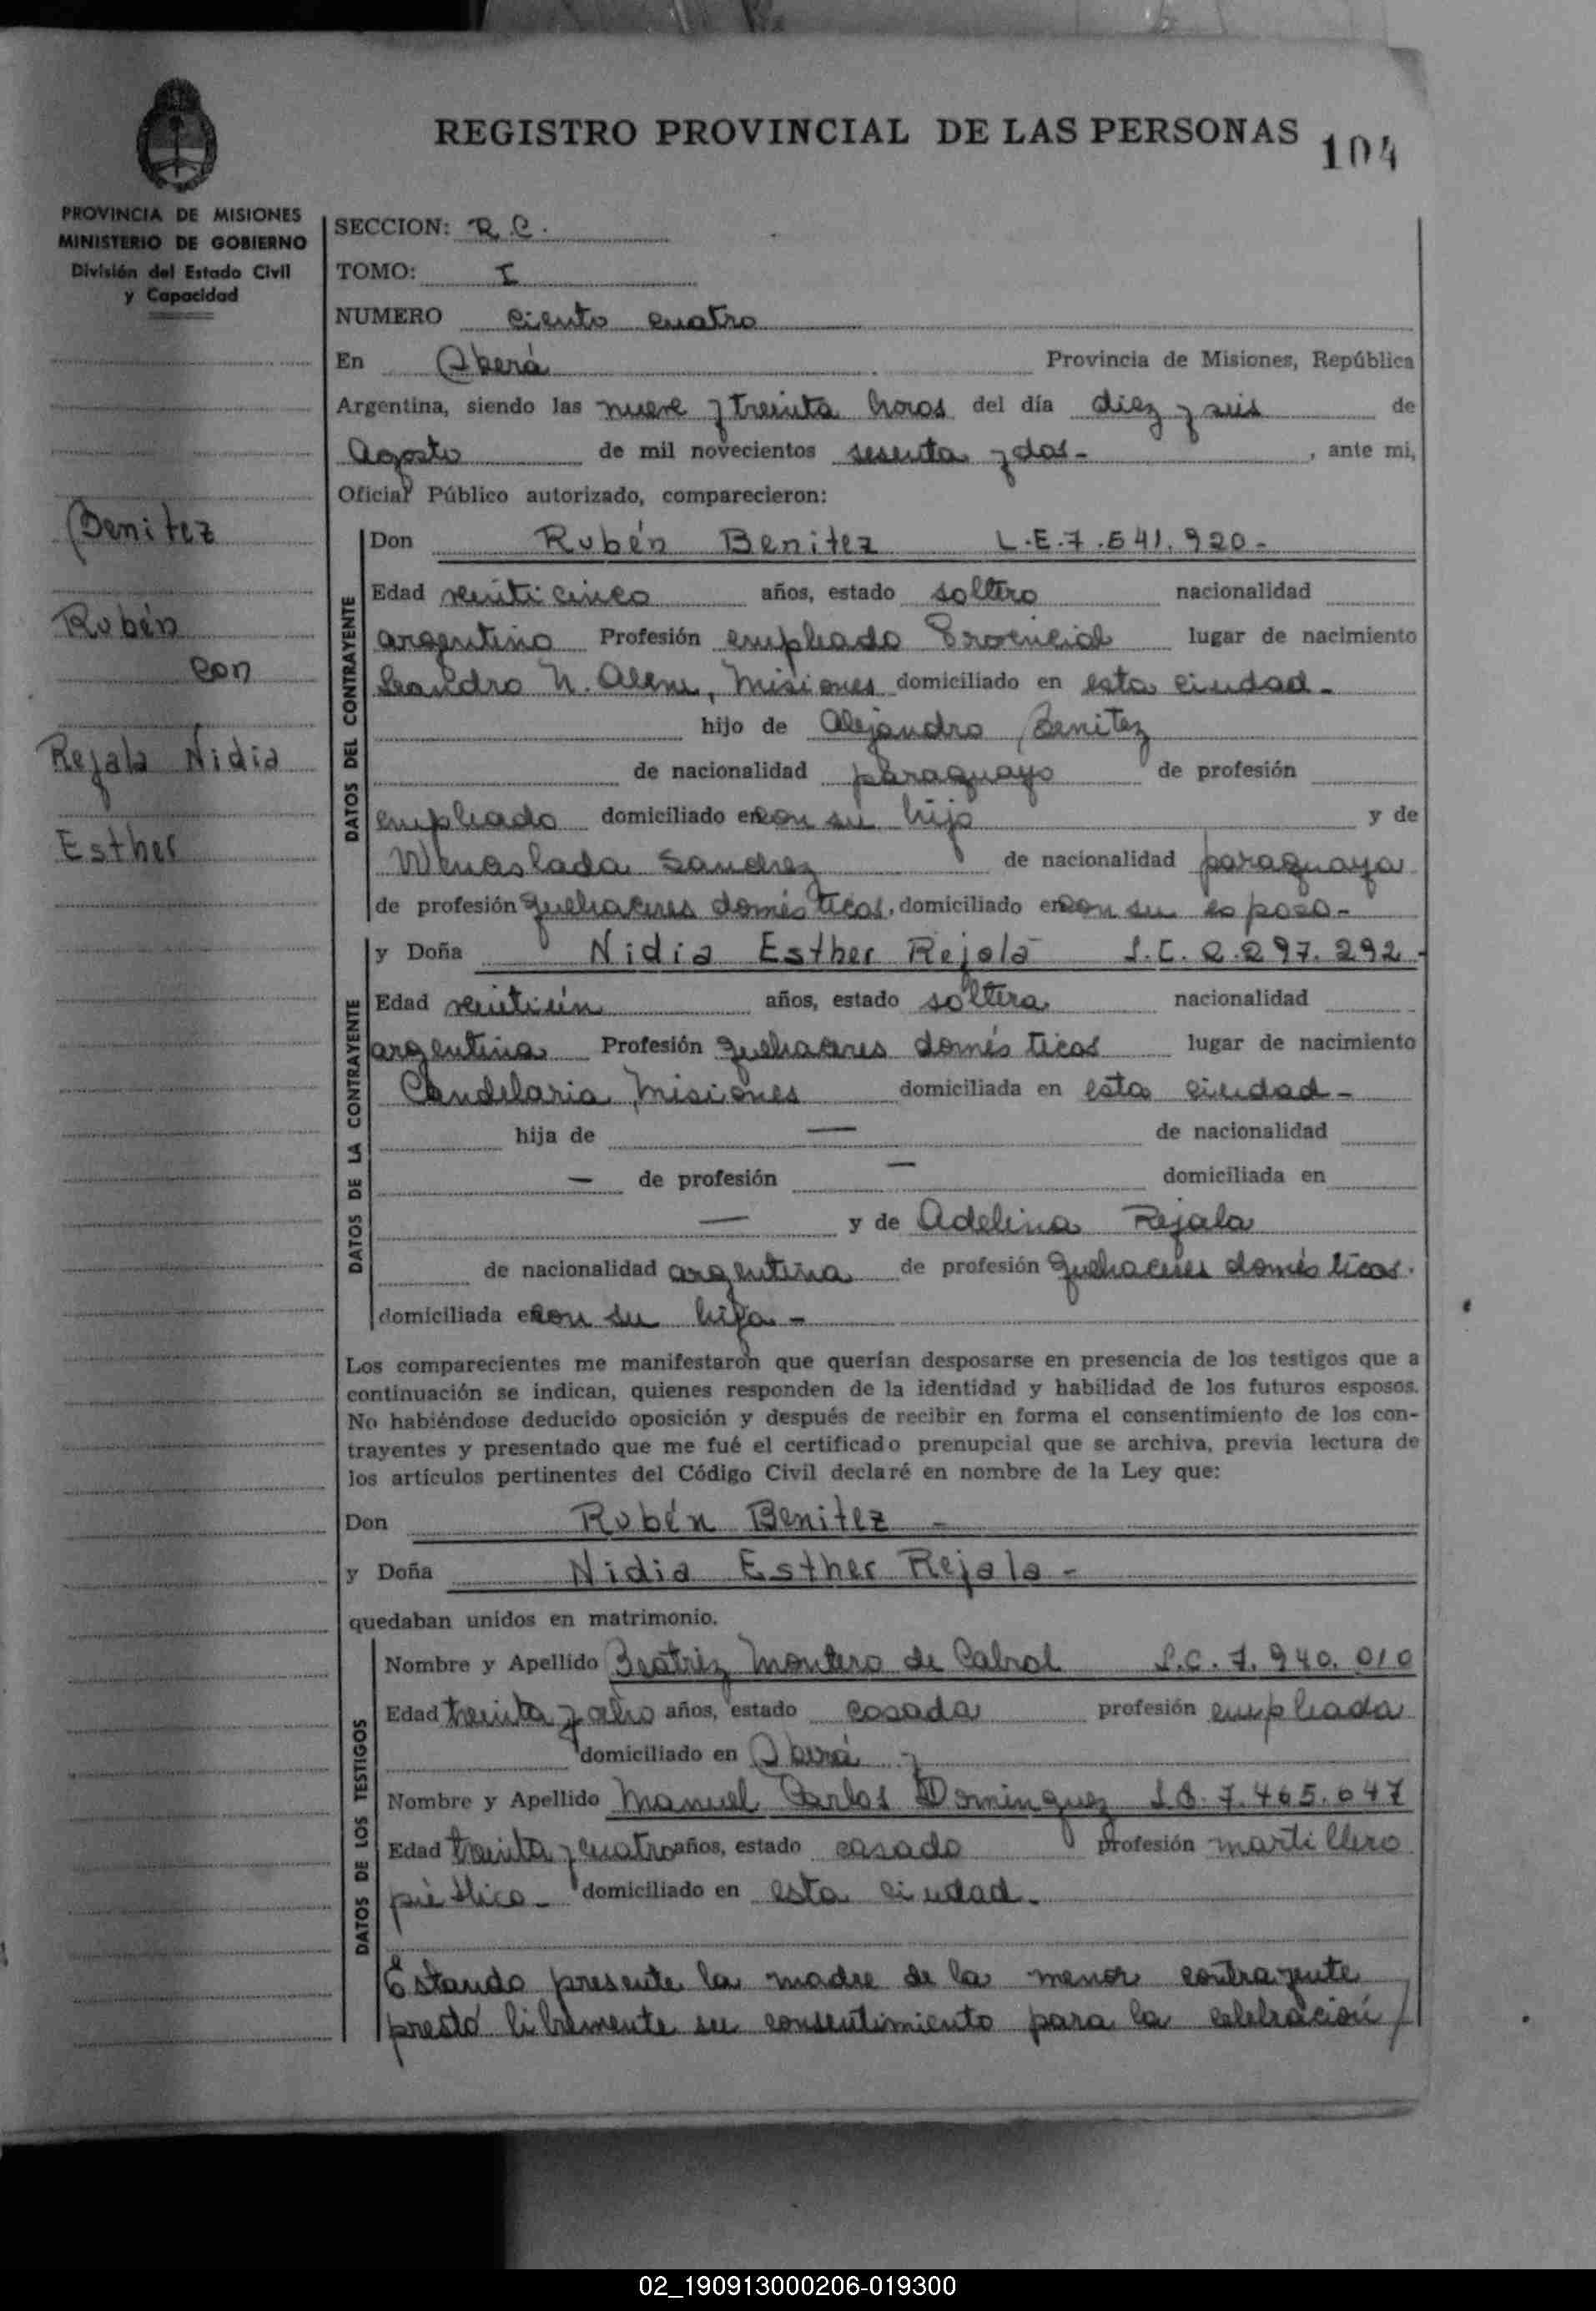 REGISTRO PROVINCIAL DE LAS PERSONAS
104
PROVINCIA DE MISIONES
MINISTERIO DE GOBIERNO
División del Estado Civil
y Capacidad
Benitez
Rubén
con
Rejala Nidia
Esther
SECCION: R.C.
TOMO: I
NUMERO ciento cuatro
En Oberá Provincia de Misiones, República
Argentina, siendo las nueve y treinta horas del día diez y seis de
Agosto de mil novecientos sesenta y dos- , ante mi,
Oficial Público autorizado, comparecieron:
DATOS DEL CONTRAYENTE
Don Rubén Benitez L.E.7.541.920-
Edad veinticinco años, estado soltero nacionalidad
argentino Profesión empleado Provincial lugar de nacimiento
Leandro N. Alem, Misiones domiciliado en esta ciudad-
hijo de Alejandro Benitez
de nacionalidad paraguayo de profesión
empleado domiciliado en con su hijo y de
Wenaslada Sanchez de nacionalidad paraguaya
de profesión quehaceres domésticos, domiciliado en con su esposo-
DATOS DE LA CONTRAYENTE
y Doña Nidia Esther Rejala L.C. 2.297.292-
Edad veintiún años, estado soltera nacionalidad
argentina Profesión quehaceres domésticos lugar de nacimiento
Candelaria, Misiones domiciliada en esta ciudad-
hija de — de nacionalidad
— de profesión — domiciliada en
— y de Adelina Rejala
de nacionalidad argentina de profesión quehaceres domésticos.
domiciliada en con su hija-
Los comparecientes me manifestaron que querían desposarse en presencia de los testigos que a
continuación se indican, quienes responden de la identidad y habilidad de los futuros esposos.
No habiéndose deducido oposición y después de recibir en forma el consentimiento de los con-
trayentes y presentado que me fué el certificado prenupcial que se archiva, previa lectura de
los artículos pertinentes del Código Civil declaré en nombre de la Ley que:
Don Rubén Benitez -
y Doña Nidia Esther Rejala-
quedaban unidos en matrimonio.
DATOS DE LOS TESTIGOS
Nombre y Apellido Beatriz Montero de Cabral L.C. 7.940.010
Edad treinta y ocho años, estado casada profesión empleada
domiciliado en Oberá y
Nombre y Apellido Manuel Carlos Dominguez L.E. 7.465.647
Edad treinta y cuatro años, estado casado profesión martillero
público- domiciliado en esta ciudad-
Estando presente la madre de la menor contrayente
prestó libremente su consentimiento para la celebración/
02_190913000206-019300